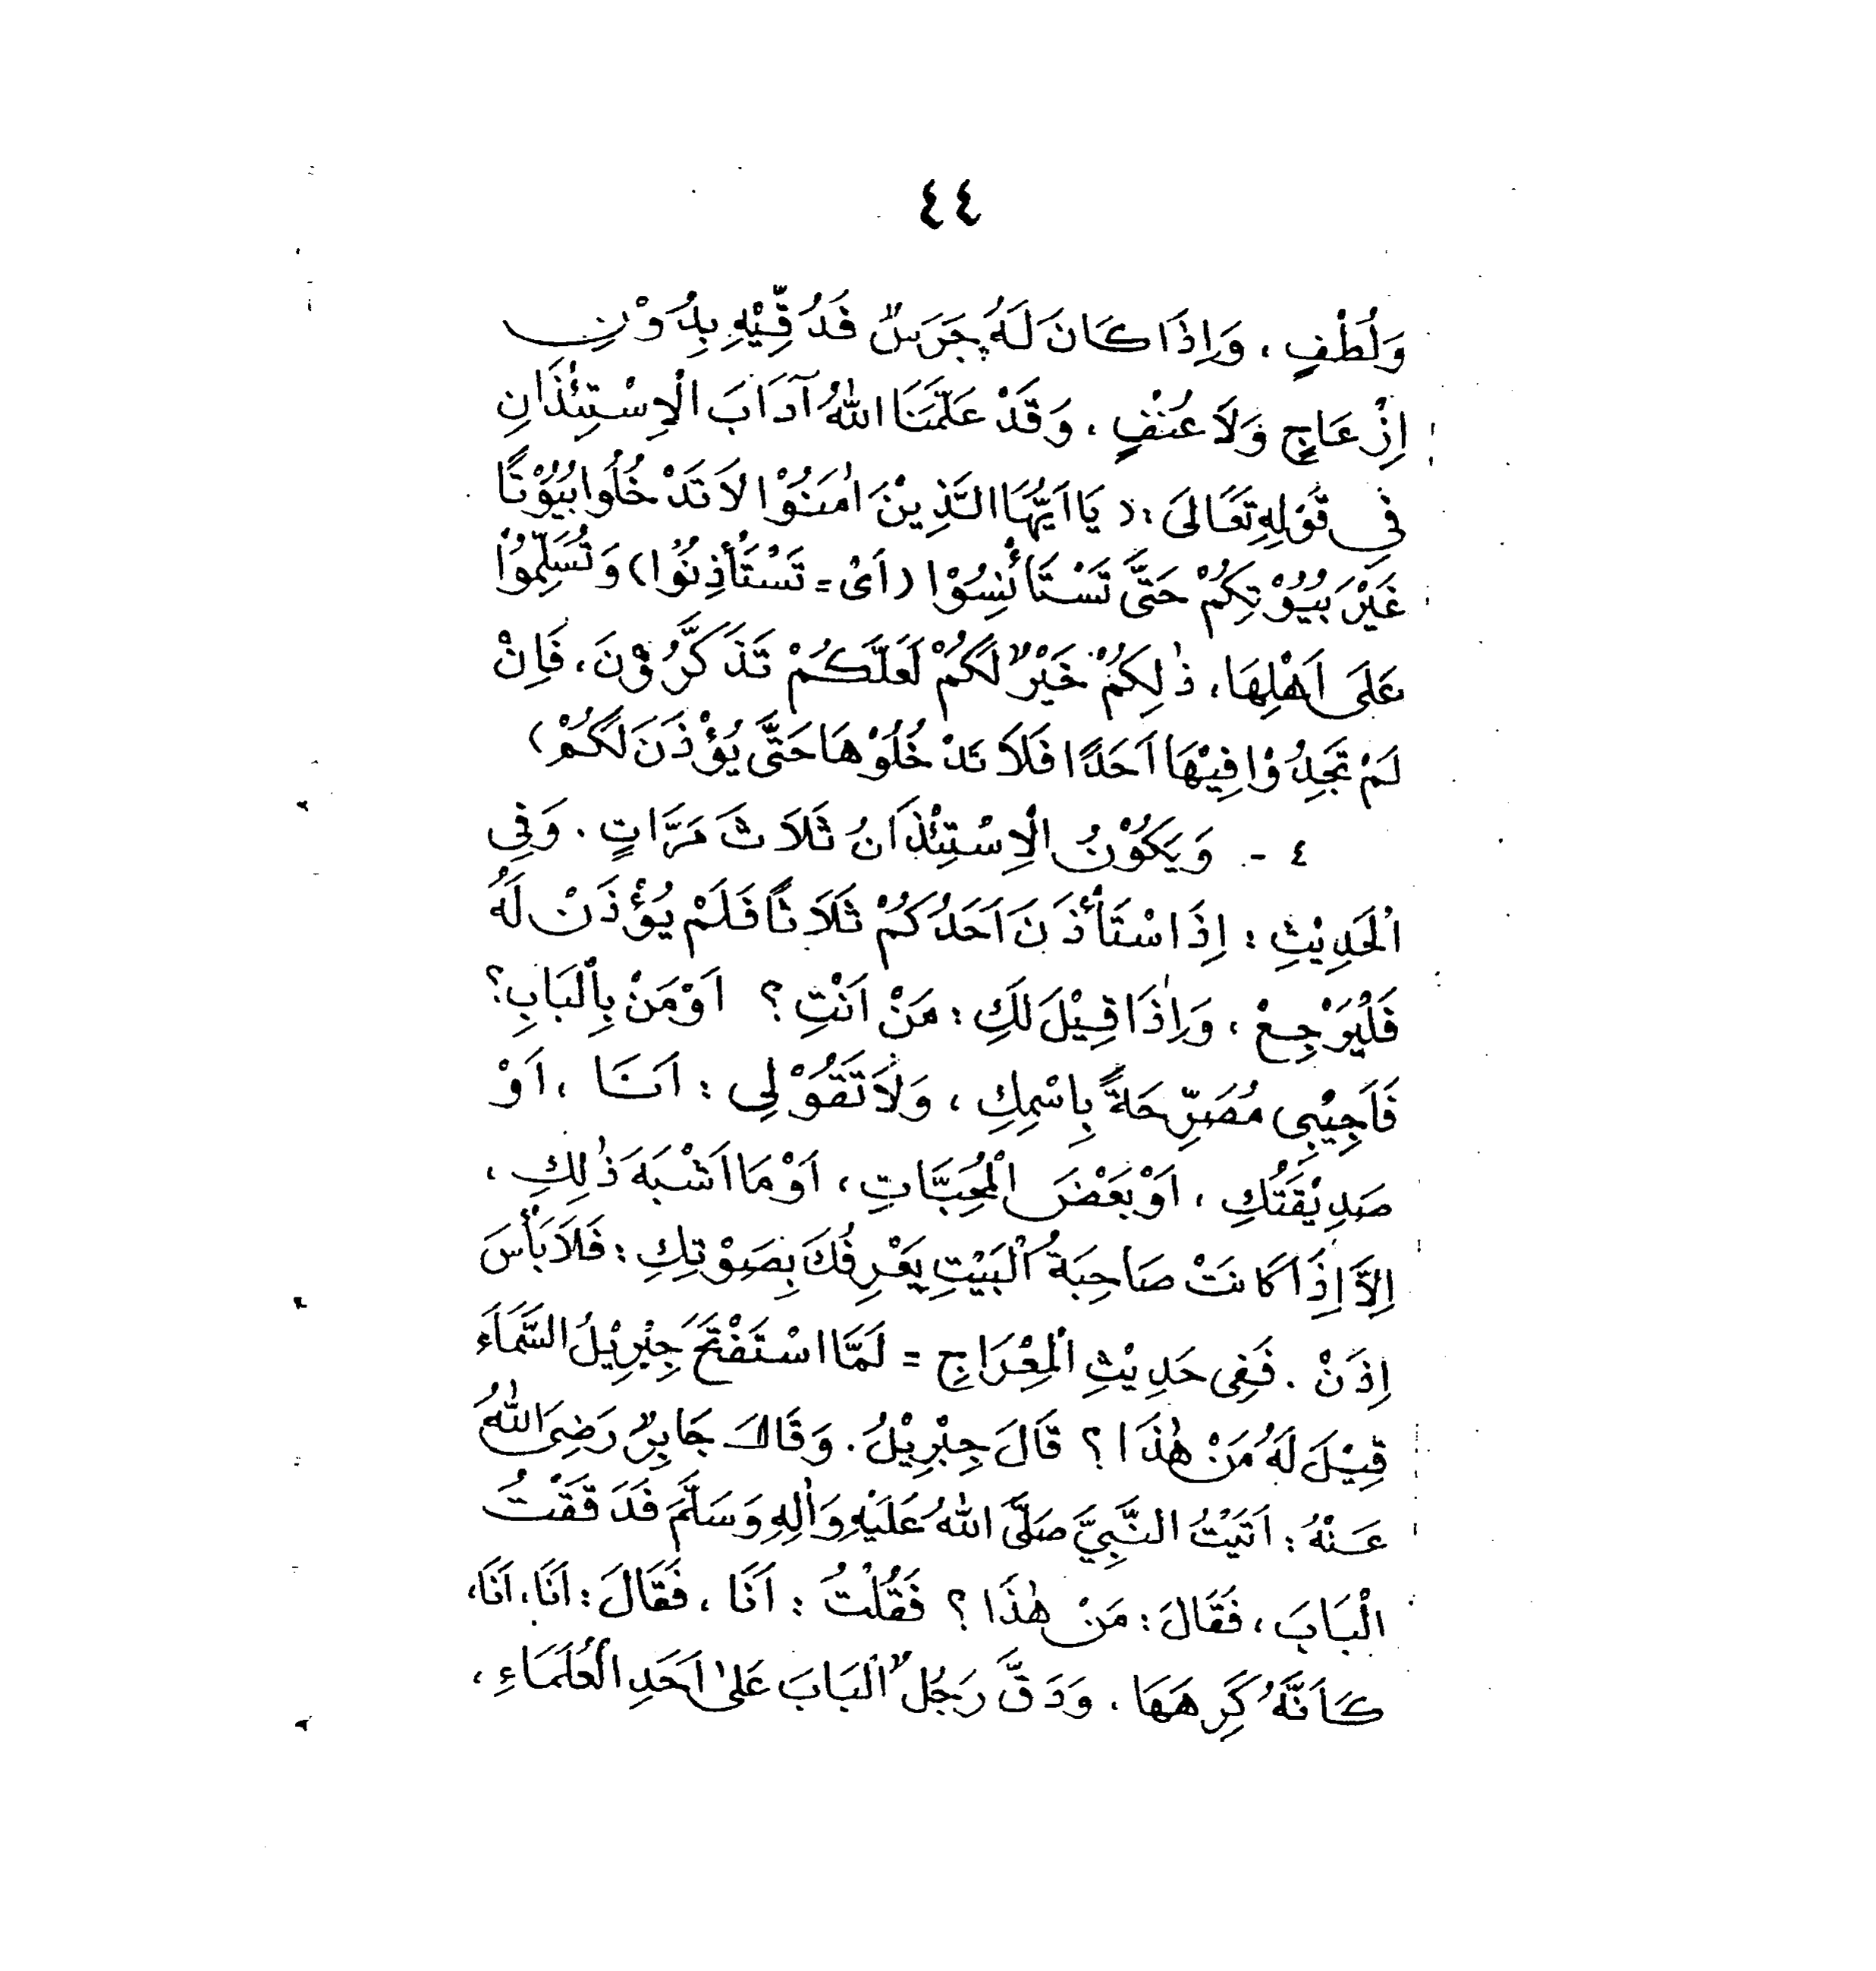 ٤٤
وَلُطْفٍ ، وَاِذَا كَانَ لَهُ جَرَسٌ فَدُقِّيْهِ بِدُوْنِ
اِزْعَاجٍ وَلَا عُنْفٍ ، وَقَدْ عَلَّمَنَا اللهُ آدَابَ الْاِسْتِئْذَانِ
فِي قَوْلِهِ تَعَالَى : ( يَا اَيُّهَا الَّذِيْنَ اٰمَنُوْا لَا تَدْخُلُوا بُيُوْتًا
غَيْرَ بُيُوْتِكُمْ حَتَّى تَسْتَأْنِسُوْا (اَىْ = تَسْتَأْذِنُوْا) وَتُسَلِّمُوْا
عَلَى اَهْلِهَا ، ذٰلِكُمْ خَيْرٌ لَكُمْ لَعَلَّكُمْ تَذَكَّرُوْنَ ، فَاِنْ
لَمْ تَجِدُوْا فِيْهَا اَحَدًا فَلَا تَدْخُلُوْهَا حَتَّى يُؤْذَنَ لَكُمْ )
٤ - وَيَكُوْنُ الْاِسْتِئْذَانُ ثَلَاثَ مَرَّاتٍ . وَفِى
الْحَدِيْثِ : اِذَا اسْتَأْذَنَ اَحَدُكُمْ ثَلَاثًا فَلَمْ يُؤْذَنْ لَهُ
فَلْيَرْجِعْ ، وَاِذَا قِيْلَ لَكِ : مَنْ اَنْتِ ؟ اَوْ مَنْ بِالْبَابِ ؟
فَاَجِيْبِى مُصَرِّحَةً بِاسْمِكِ ، وَلَا تَقُوْلِى : اَنَا ، اَوْ
صَدِيْقَتُكِ ، اَوْ بَعْضَ الْمُحِبَّاتِ ، اَوْ مَا اَشْبَهَ ذٰلِكِ ،
اِلَّا اِذَا كَانَتْ صَاحِبَةُ الْبَيْتِ يَعْرِفُكَ بِصَوْتِكِ : فَلَا بَأْسَ
اِذَنْ . فَفِى حَدِيْثِ الْمِعْرَاجِ = لَمَّا اسْتَفْتَحَ جِبْرِيْلُ السَّمَاءَ
قِيْلَ لَهُ مَنْ هٰذَا ؟ قَالَ جِبْرِيْلُ . وَقَالَ جَابِرٌ رَضِىَ اللهُ
عَنْهُ : اَتَيْتُ النَّبِيَّ صَلَّى اللهُ عَلَيْهِ وَاٰلِهِ وَسَلَّمَ فَدَقَقْتُ
الْبَابَ ، فَقَالَ : مَنْ هٰذَا ؟ فَقُلْتُ : اَنَا ، فَقَالَ : اَنَا ، اَنَا ،
كَاَنَّهُ كَرِهَهَا . وَدَقَّ رَجُلٌ الْبَابَ عَلىٰ اَحَدِ الْعُلَمَاءِ ،